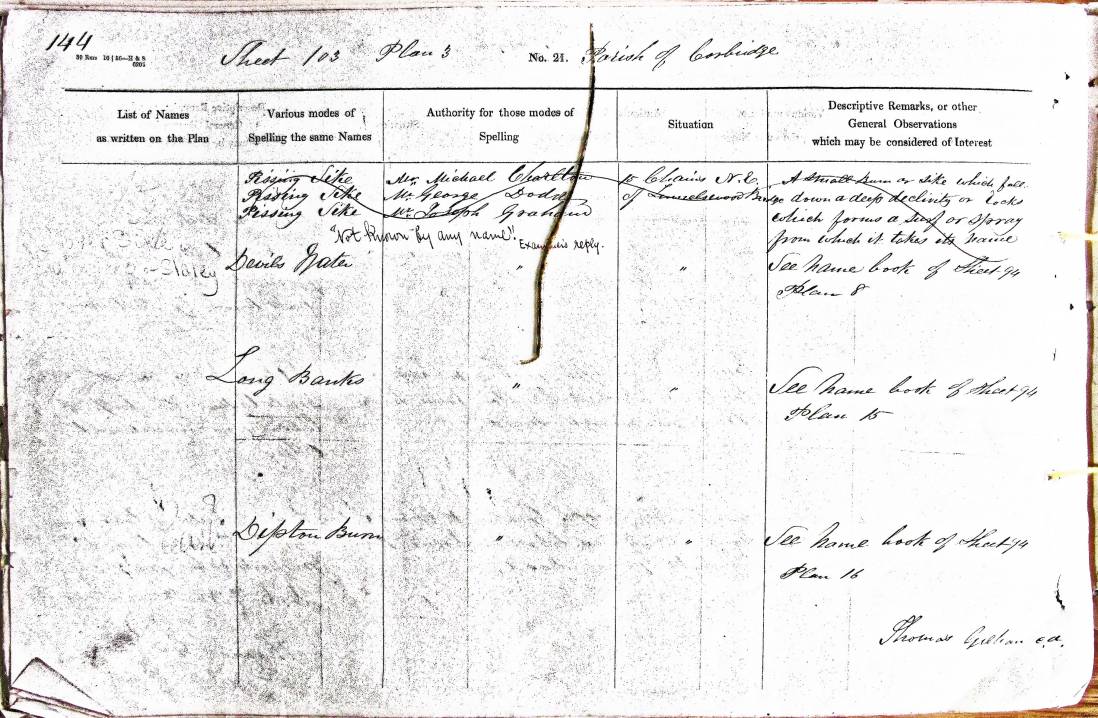 144
Sheet 103 Plan 3 No. 21. Parish of Corbridge
List of Names
as written on the Plan
Various modes of
Spelling the same Names
Authority for those modes of
Spelling
Situation
Descriptive Remarks, or other
General Observations
which may be considered of Interest
Pissing Sike Mr. Michael Charlton 15 Chains N.E. A small Burn or sike which falls
Pissing Sike Mr. George Dodd of Linnelswood Bridge down a deep declivity or rocks
Pissing Sike Mr. Joseph Graham which forms a surf or spray
from which it takes its name
"Not known by any name". Examiner's reply.
Devils Water " " See Name book of Sheet 94
Plan 8
Long Banks " " See Name book of Sheet 94
Plan 15
Dipton Burn " " See Name book of Sheet 94
Plan 16
Thomas c.a.